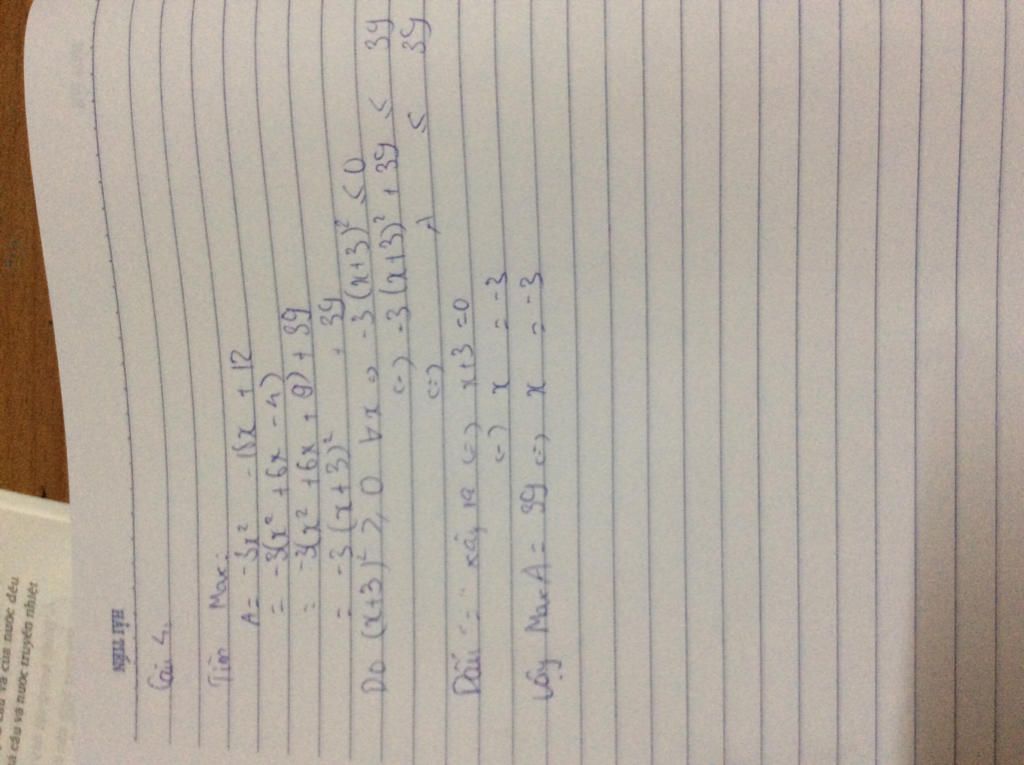 Câu 4.
Tìm Max:
A = -3x² - 18x + 12
= -3(x² + 6x - 4)
= -3(x² + 6x + 9) + 39
= -3(x + 3)² + 39
Do (x+3)² ≥ 0 ∀x => -3(x+3)² ≤ 0
<=> -3(x+3)² + 39 ≤ 39
<=> A ≤ 39
Dấu "=" xảy ra <=> x+3=0
<=> x = -3
Vậy Max A = 39 <=> x = -3
cầu và của nước đều
quả cầu và nước truyền nhiệt